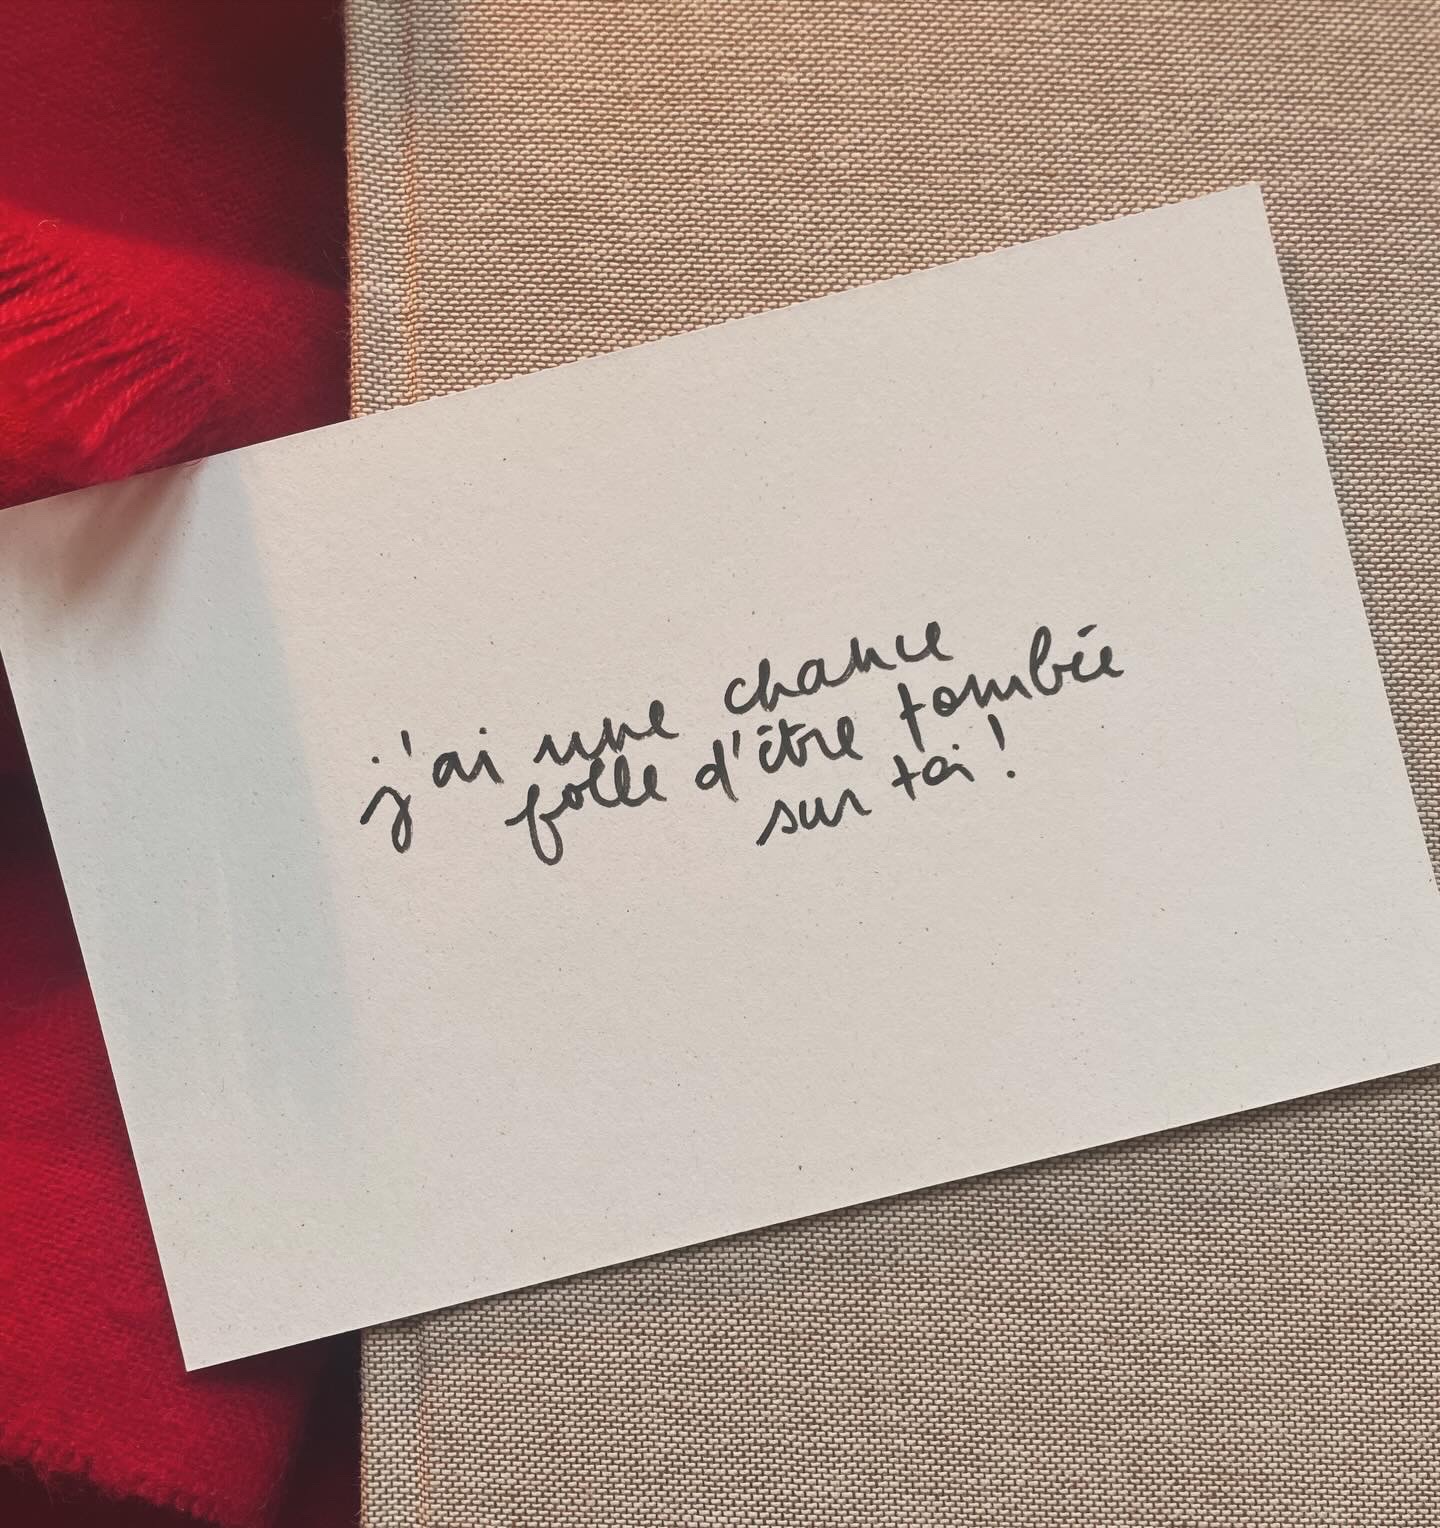 j'ai une chance
folle d'être tombée
sur toi !